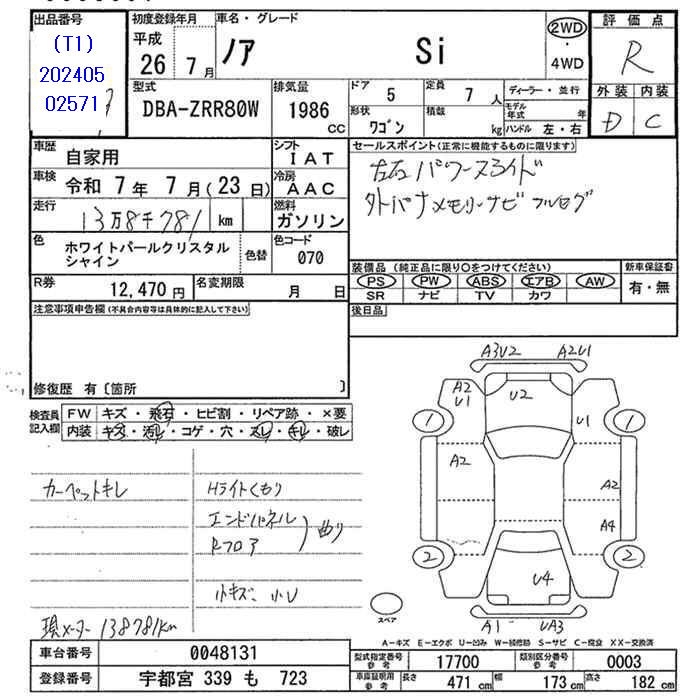 出品番号
(T1)
202405
02571
初度登録年月
平成
26 年 7 月
車名・グレード
ノア Si
2WD
・
4WD
評価点
R
外装 内装
D C
型式
DBA-ZRR80W
排気量
1986 CC
ドア 5
定員 7 人
形状 ワゴン
積載 kg
ディーラー・並行
モデル年式 年
ハンドル 左・右
車歴 自家用
シフト IAT
車検 令和 7 年 7 月 (23 日)
冷房 AAC
走行 13万8千781 km
燃料 ガソリン
色 ホワイトパールクリスタルシャイン
色替
色コード 070
R券 12,470 円
名変期限 月 日
セールスポイント(正常に機能するものに限ります)
左右パワースライド
外ハナメモリーナビ フルセグ
装備品 (純正品に限り○をつけてください)
PS PW ABS エアB AW
SR ナビ TV カワ
新車保証書
有・無
後日品
注意事項申告欄 (不具合内容等は具体的に記入して下さい)
修復歴 有〔箇所 〕
検査員記入欄
FW キズ・飛石・ヒビ割・リペア跡・×要
内装 キズ・汚れ・コゲ・穴・スレ・キレ・破レ
カーペットキレ
Hライトくもり
エンドパネル
Rフロア
) 曲り
小キズ 小U
現メーター 138781km
A3U2 A2U1
A2
U1
U2
U1
1 1
A2
A2
A4
2 2
U4
A1 UA3
スペア
A-キズ E-エクボ U-凹み W-補修跡 S-サビ C-腐食 XX-交換済
車台番号 0048131
登録番号 宇都宮 339 も 723
型式指定番号 参考 17700
類別区分番号 参考 0003
車庫証明用 参考
長さ 471 cm
幅 173 cm
高さ 182 cm